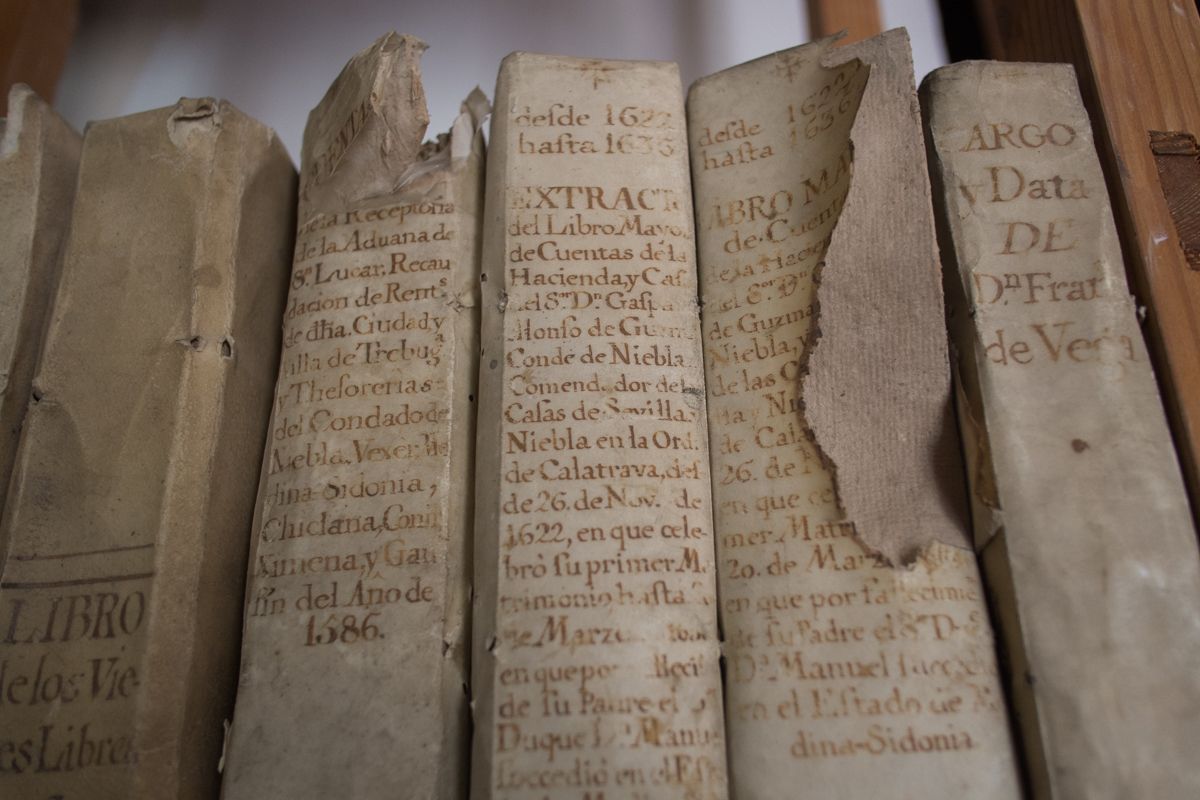 LIBRO
de los Vie-
es Libre
de la Receptoria
de la Aduana de
Sn. Lucar. Recau
dacion de Rents
de dha. Ciudad y
de Trebuga
y Thesorerias
del Condado de
Niebla. Vexer. Me
dina-Sidonia,
Chiclana, Conil
Ximena, y Gau
fin del Año de
1586.
desde 1622
hasta 1636
EXTRACT
del Libro Mayo
de Cuentas de la
Hacienda, y Cas
del Sor. Dn. Gaspa
Alonso de Guzm
Conde de Niebla
Comendador de
Casas de Sevilla
Niebla en la Ord.
de Calatrava, des
de 26. de Nov. de
1622, en que cele-
brò su primer Ma
trimonio hasta
de Marzo 1636
en que por
de su Padre el
Duque Dn. Manu
soccedió en el Est
desde 1622
hasta 1636
LIBRO MA
de Cuent
de la Hacie
del Sor. Dn.
de Guzma
Niebla, y
de las C
lla y Ni
de Cala
26. de N
en que ce
mer Matri
20. de Marzo
en que por fallecimie
de su Padre el Sor. D
Dn. Manuel succedi
en el Estado de Me
dina-Sidonia
CARGO
y Data
DE
Dn. Fran
de Vega